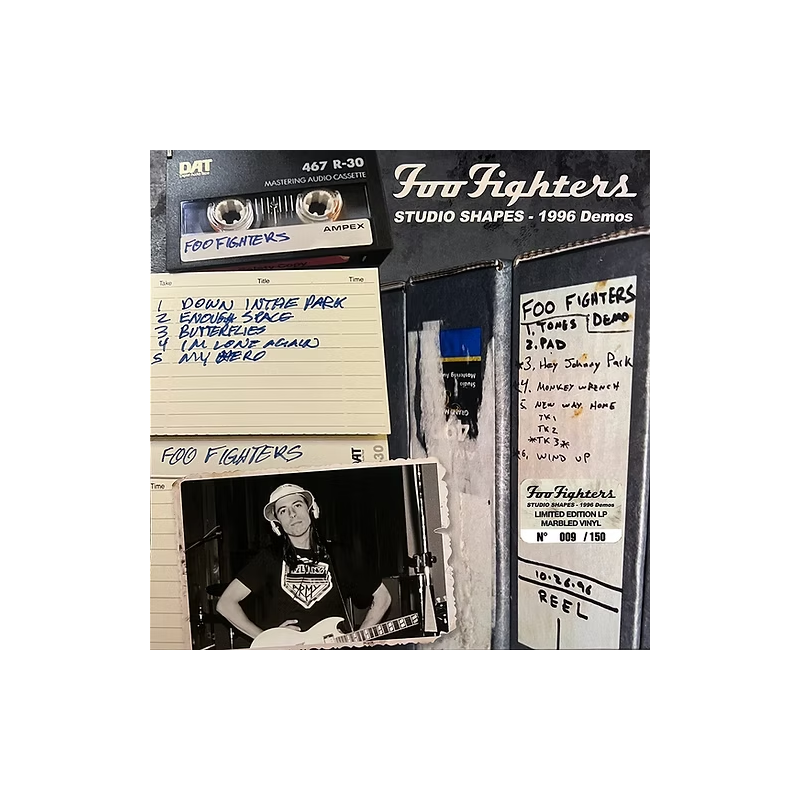 DAT
467 R-30
MASTERING AUDIO CASSETTE
AMPEX
FOO FIGHTERS
Foo Fighters
STUDIO SHAPES - 1996 Demos
Take Title Time
1 DOWN IN THE PARK
2 ENOUGH SPACE
3 BUTTERFLIES
4 (I'M LONE AGAIN)
5 MY HERO
FOO FIGHTERS
DAT
Time
FOO FIGHTERS
1. TONGS DEMO
2. PAD
*3. Hey Johnny Park
*4. MONKEY WRENCH
5. NEW WAY HOME
TK1
TK2
*TK3*
*6. WIND UP
Foo Fighters
STUDIO SHAPES - 1996 Demos
LIMITED EDITION LP
MARBLED VINYL
N° 009 / 150
10-26-96
REEL
1